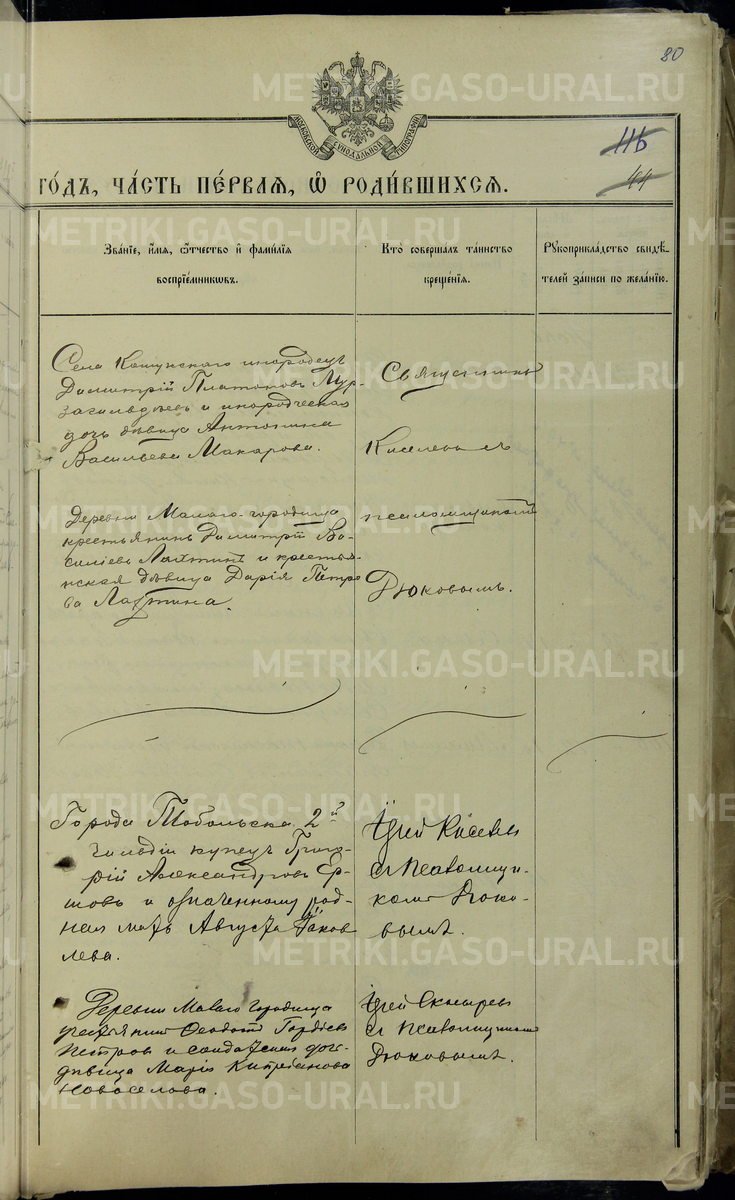 80
МОСКОВСКОЙ СѴНОДАЛЬНОЙ ТИПОГРАФІИ
116
44
ГО́ДЪ, ЧА́СТЬ ПЕ́РВАЯ, Ѡ҆ РОДИ́ВШИХСЯ.
Зва́нїе, и҆́мя, ѻ҆́тчество и҆ фами́лїя
воспрїе́мникѡвъ.
Кто̀ соверша́лъ та́инство
креще́нїя.
Рꙋкоприкла́дство свидѣ́-
телей за́писи по жела́нїю.
Села Кошукскаго инородецъ
Димитрій Платоновъ Мур-
загильдѣевъ и инородческая
дочь дѣвица Антонина
Васильева Макарова.
Священникъ
Киселевъ съ
псаломщикомъ
Дюковымъ.
Деревни Малаго-городища
крестьянинъ Димитрій Ва-
силіевъ Лахтинъ и крестья-
нская дѣвица Дарія Петро-
ва Лахтина.
Города Тобольска 2й
гильдіи купецъ Григо-
рій Александровъ Ер-
шовъ и означенному род-
ная мать Августа Яков
лева.
Іерей Киселевъ
съ псаломщи-
комъ Дюко-
вымъ.
Деревни Малаго Городища
крестьянинъ Ѳеодотъ Гордѣевъ
Петровъ и солдатская дочь
дѣвица Марія Кипріанова
Новоселова.
Іерей
съ Псаломщикомъ
Дюковымъ.
METRIKI.GASO-URAL.RU